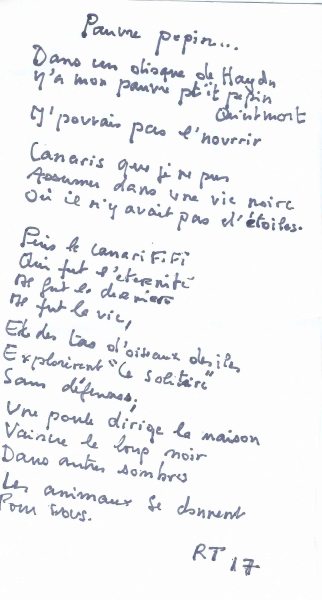 Pauvre pepin...
Dans un disque de Haydn
Y'a mon pauvre pt'it pepin
Qui est mort
M'pouvais pas l'nourrir
Canaris que je ne pus
Assumer dans une vie noire
Où il n'y avait pas d'étoiles.
Puis le canari FiFi
Qui fut l'éternité
Me fut le dernier
Me fut la vie,
Et des tas d'oiseaux des iles
Explorèrent "le Solitaire"
Sans défenses;
Une poule dirige la maison
Vaincre le loup noir
Dans antres sombres
Les animaux se donnent
Pour nous.
RT 17